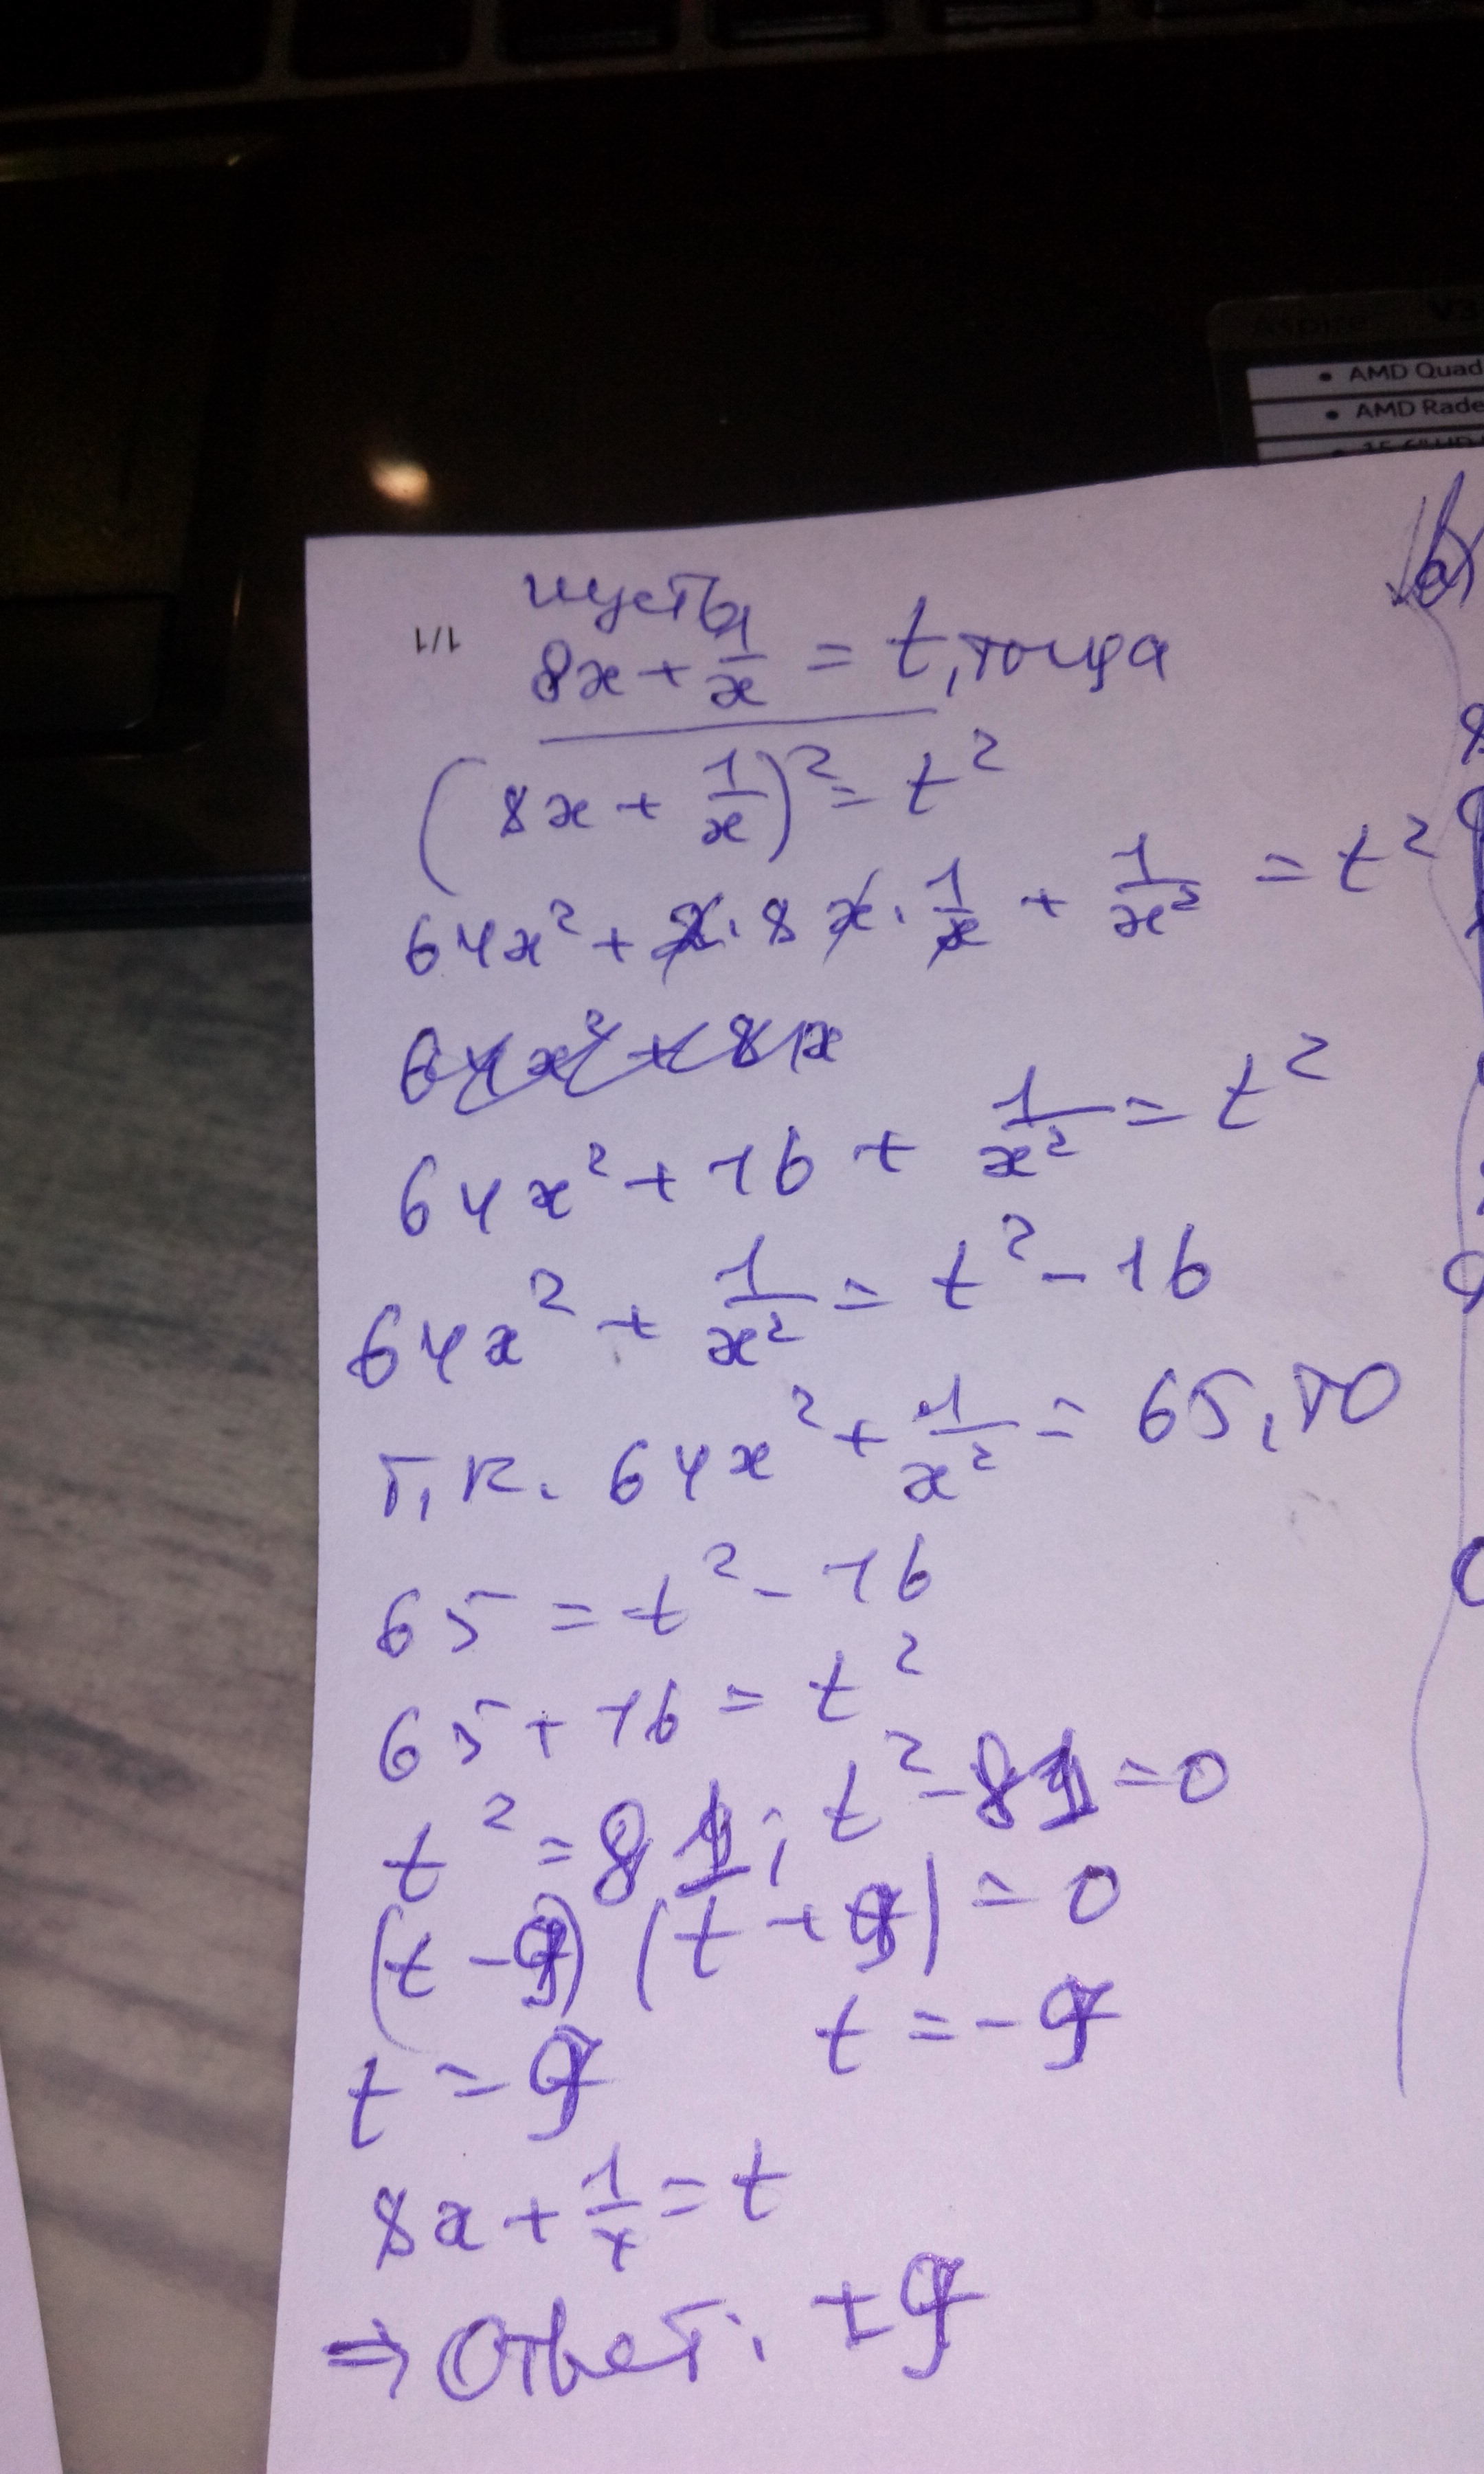 Aspire V3
• AMD Quad
• AMD Rade
1/1
пусть
8x + 1/x = t, тогда
(8x + 1/x)² = t²
64x² + 2·8x·1/x + 1/x² = t²
64x² + 8x
64x² + 16 + 1/x² = t²
64x² + 1/x² = t² - 16
т.к. 64x² + 1/x² = 65, то
65 = t² - 16
65 + 16 = t²
t² = 81; t² - 81 = 0
(t - 9) (t + 9) = 0
t = 9 t = -9
8x + 1/x = t
⇒ Ответ: ±9